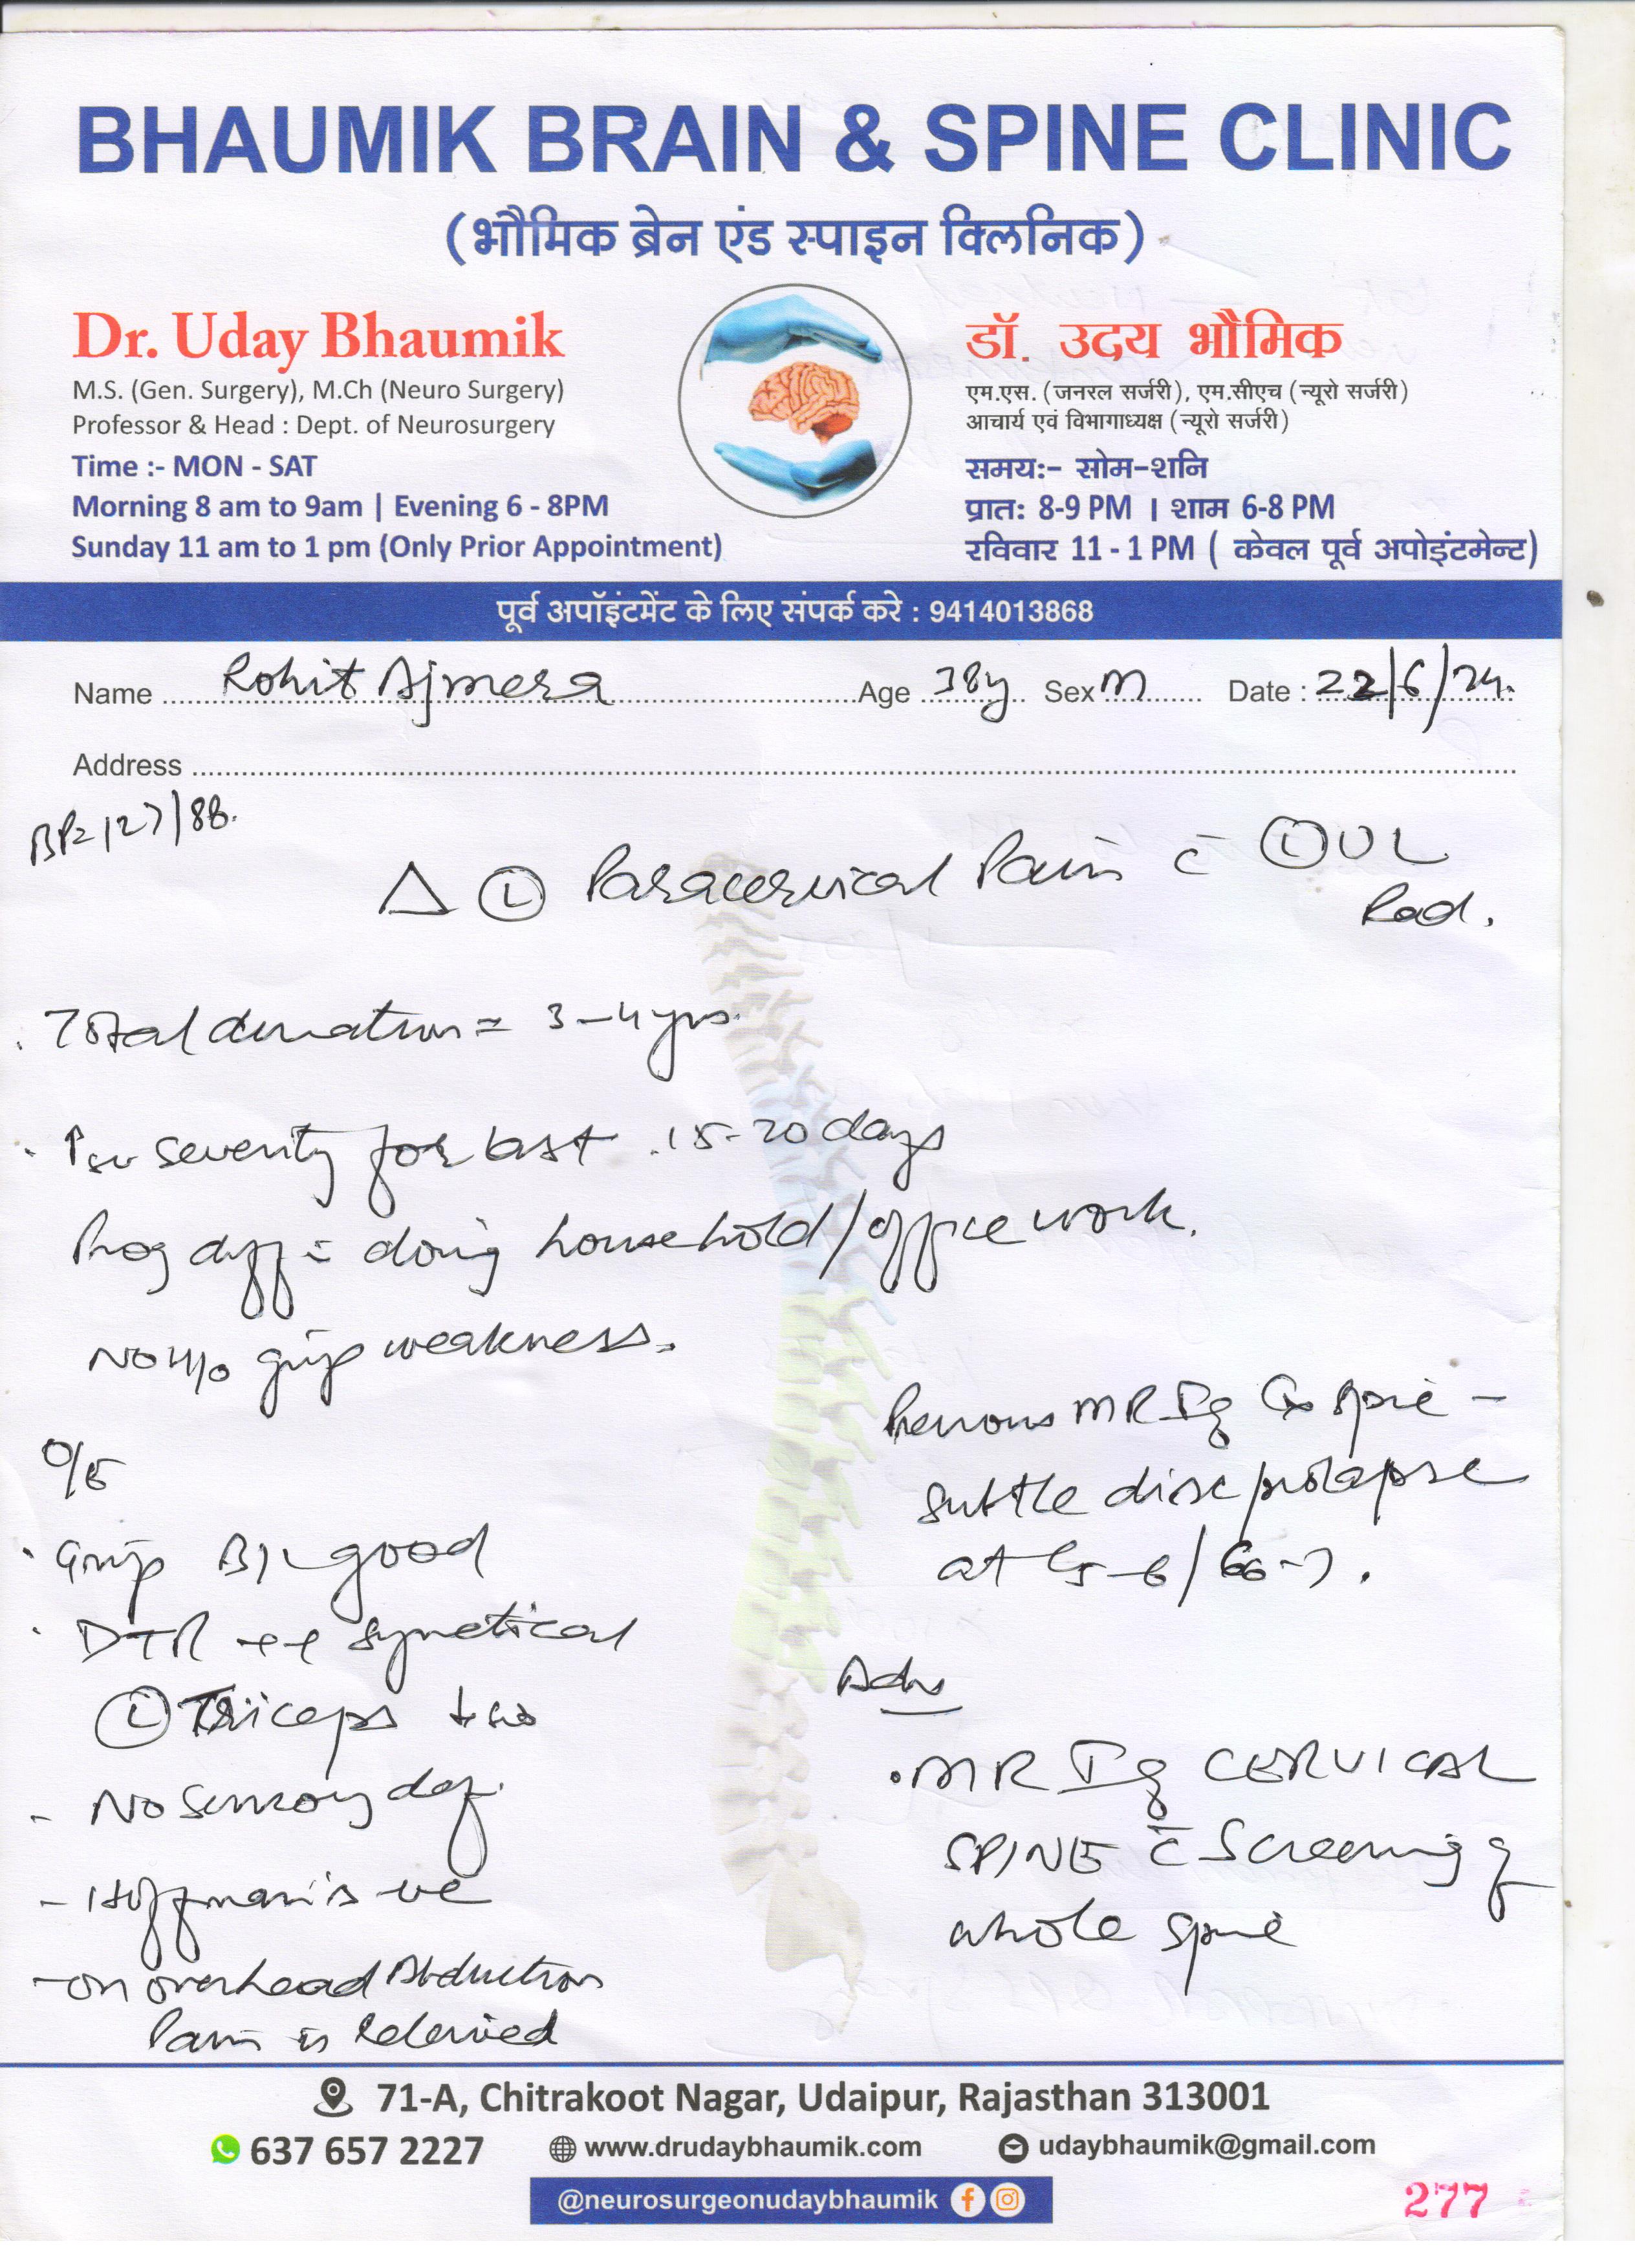 BHAUMIK BRAIN & SPINE CLINIC
(भौमिक ब्रेन एंड स्पाइन क्लिनिक)
Dr. Uday Bhaumik
M.S. (Gen. Surgery), M.Ch (Neuro Surgery)
Professor & Head : Dept. of Neurosurgery
Time :- MON - SAT
Morning 8 am to 9am | Evening 6 - 8PM
Sunday 11 am to 1 pm (Only Prior Appointment)
डॉ. उदय भौमिक
एम.एस. (जनरल सर्जरी), एम.सीएच (न्यूरो सर्जरी)
आचार्य एवं विभागाध्यक्ष (न्यूरो सर्जरी)
समय:- सोम-शनि
प्रात: 8-9 PM । शाम 6-8 PM
रविवार 11 - 1 PM ( केवल पूर्व अपोइंटमेन्ट)
पूर्व अपॉइंटमेंट के लिए संपर्क करे : 9414013868
Name Rohit Ajmera Age 38y Sex M Date : 22/6/24.
Address
BP= 127/88.
Δ Ⓛ Paracervical Pain c̄ Ⓛ UL
Rad.
. Total duration = 3-4 yrs.
. severity for last 15-20 days
Prog diff c̄ doing household/office work.
No H/o grip weakness.
O/E
. Grip B/L good
. DTR ++ symetical
Ⓛ Triceps
- No sensory def.
- Hoffman's -ve
- on overhead Abduction
Pain is relieved
Previous MRI of Cx spine -
subtle disc prolapse
at C5-6/C6-7.
Adv
. MRI of CERVICAL
SPINE c̄ Screening of
whole spine
71-A, Chitrakoot Nagar, Udaipur, Rajasthan 313001
637 657 2227 www.drudaybhaumik.com udaybhaumik@gmail.com
@neurosurgeonudaybhaumik
277